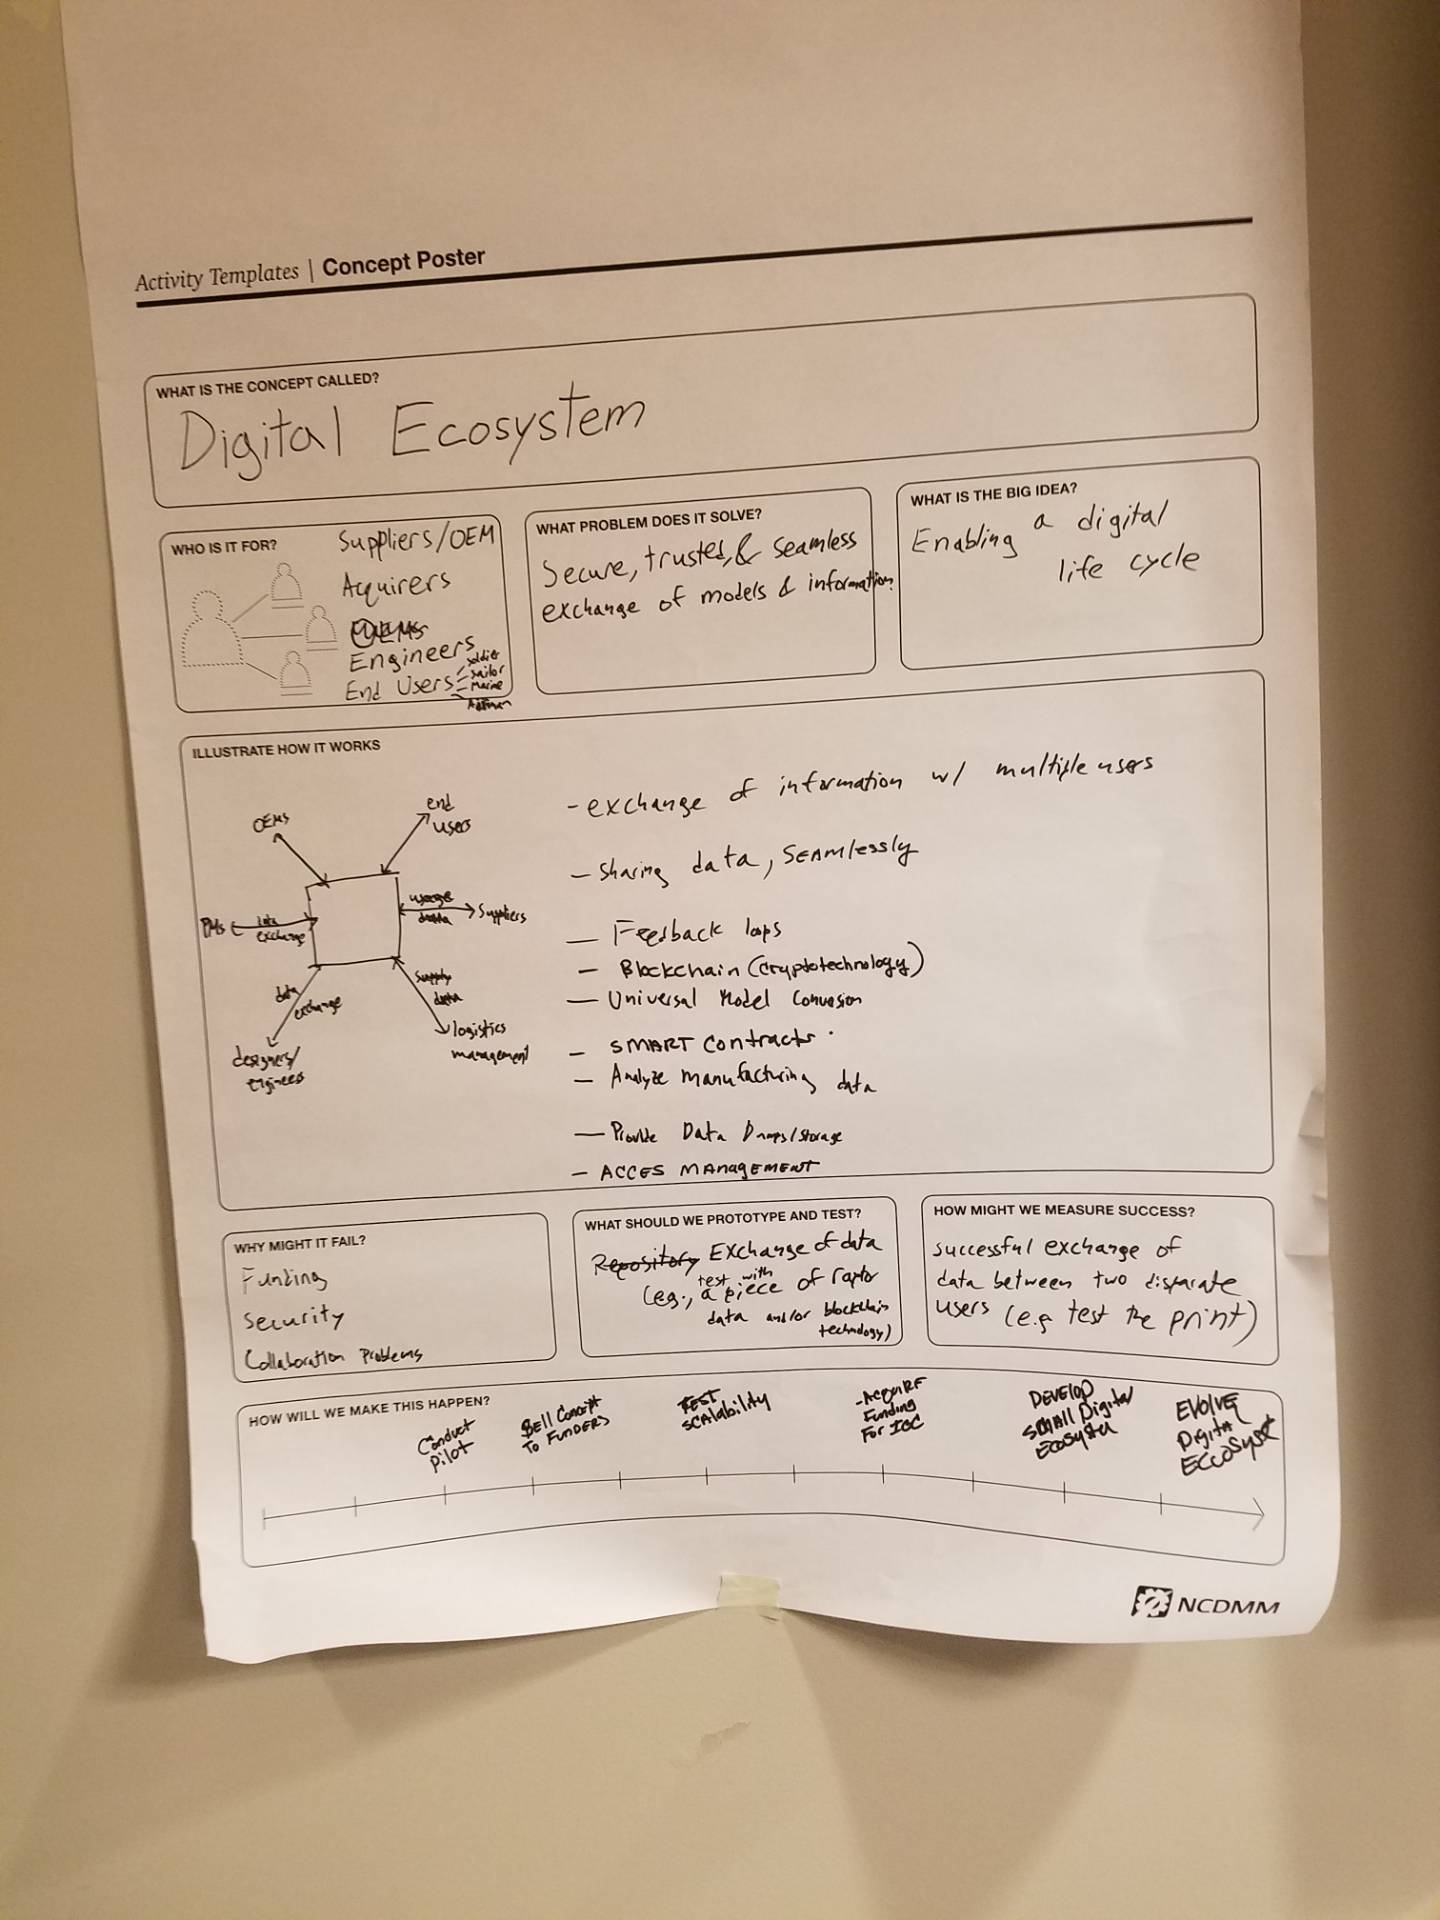 Activity Templates | Concept Poster
WHAT IS THE CONCEPT CALLED?
Digital Ecosystem
WHO IS IT FOR?
Suppliers/OEM
Acquirers
OEMS
Engineers
End Users
soldier
sailor
marine
Airman
WHAT PROBLEM DOES IT SOLVE?
Secure, trusted, & seamless
exchange of models & information.
WHAT IS THE BIG IDEA?
Enabling a digital
life cycle
ILLUSTRATE HOW IT WORKS
OEMs
end
users
PMs
data
exchange
usage
data
Suppliers
data
exchange
designers/
engineers
supply
data
logistics
management
- exchange of information w/ multiple users
- Sharing data, SEAMlessly
- Feedback loops
- Blockchain (cryptotechnology)
- Universal Model
- SMART Contracts
- Analyze manufacturing data
- Provide Data /Storage
- ACCES MANAgEMENT
WHY MIGHT IT FAIL?
Funding
Security
Collaboration Problems
WHAT SHOULD WE PROTOTYPE AND TEST?
Repository Exchange of data
(e.g., test with a piece of raptor
data and/or blockchain
technology)
HOW MIGHT WE MEASURE SUCCESS?
successful exchange of
data between two disparate
users (e.g test the print)
HOW WILL WE MAKE THIS HAPPEN?
Conduct
pilot
Sell Concept
To FUNDERS
TEST
SCAlability
- ACQUIRE
Funding
For IOC
DEVElop
SMAll Digital
EVOLVE
Digital
NCDMM